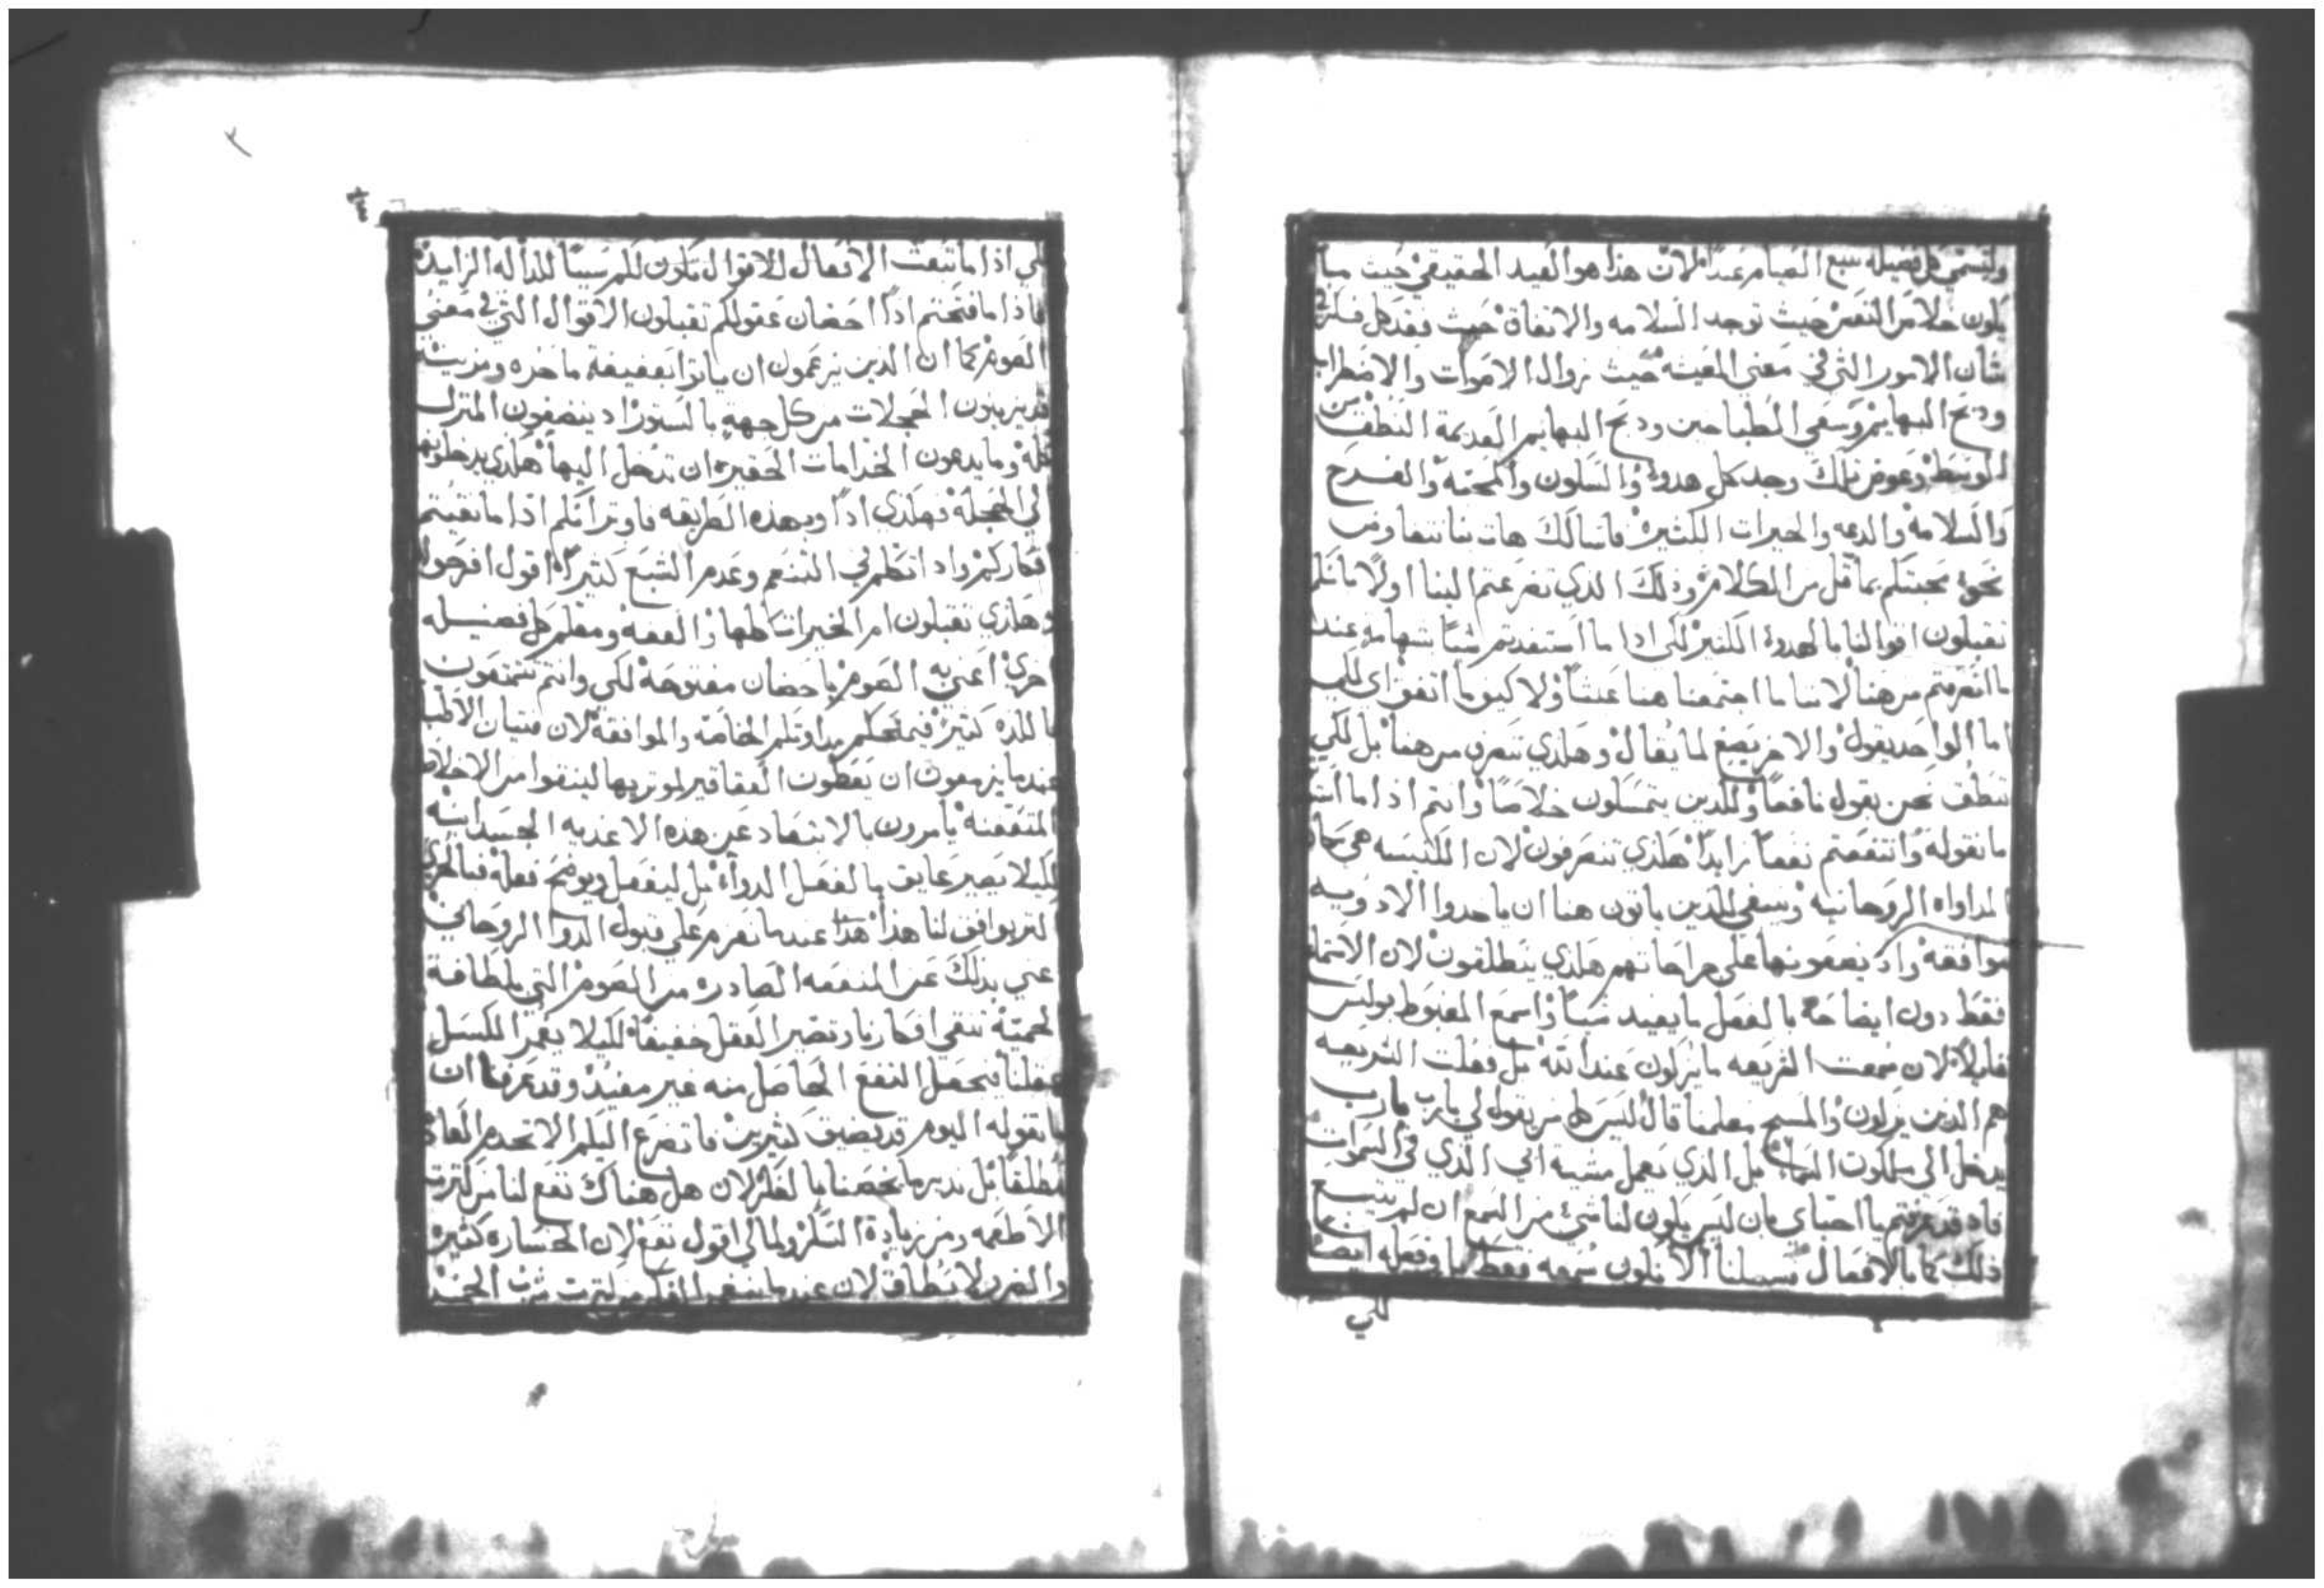 ولنسمي كل فضيلة تتبع الصيام عيداً لان هذا هو العيد الحقيقي حيث ما
يكون خلاص النفس حيث توجد السلامه والاتفاق حيث فقد كل فكر في
شان الامور التي في معنى المعيشه حيث زوال الاصوات والاضطراب
ودبح البهايم وسعي الطباخين ودبح البهايم العديمة النطق من
الوسط وعوض تلك وجد كل هدوء والسكون والمحبه والفرح
والسلامه والدعه والخيرات الكثيره فاسالك هات بنا
نحو محبتكم بما قل من الكلام وذلك الذي تضرعتم الينا اولاً بانكم
تقبلون اقوالنا بالهدوء الكثير لكي اذا ما استفدتم شياً شهامه عند
ما انصرفتم من هنا لاننا ما اجتمعنا هنا عبثاً ولا كيف ما اتفق اي لكي
اما الواحد يقول والاخر يصغ لما يقال وهكذي ننصرف من هنا بل لكي
ننطق نحن بقول نافعاً وللذين يتمسكون خلاصاً وانتم اذا ما
ما نقوله وانتفعتم نفعاً زايداً هكذي تنصرفون لان الكنيسه هي
المداواه الروحانيه وينبغي للذين ياتون هنا ان ياخدوا الادويه
موافقه واد يضعونها على جراحاتهم هكذي ينطلقون لان الاستماع
فقط دون ايضاحه بالفعل ما يفيد شياً واسمع المغبوط بولس
قايلاً لان سمعت الشريعه ما يزكون عند الله بل فعلت الشريعه
هم الذين يزكون والمسيح معلمنا قال ليس كل من يقول لي يارب يارب
يدخل الى ملكوت السماء بل الذي يعمل مشية ابي الذي في السموات
فاد قد عرفتم يا احباي بان ليس يكون لنا شي من السمع ان لم يتبع
ذلك كما بالافعال فسبيلنا الا نكون سمعه فقط بل وفعله ايضاً
لكي
لكي اذا ما تبعت الافعال للاقوال تكون لكم سبباً للداله الزايده
فاذا ما فتحتم اذاً احضان عقولكم تقبلون الاقوال التي في معنى
الصوم كما ان الذين يزعمون ان ياتوا بعفيفة ما حره ومزينه
قد يزينون الحجلات من كل جهة بالستور واد ينضفون المنزل
كله وما يدعون الخدامات الحقيره ان تدخل اليها هكذي يدخلونها
الى الحجله فهكذي اذاً وبهذه الطريقه فاوتر انكم اذا ما نقيتم
افكاركم واد اتكلتم التنعم وعدم الشبع كثيراً اقول افرحوا
وهكذي تقبلون ام الخيرات كلها والعفه ومعلم كل فضيله
اخرى اعني به الصوم باحضان مفتوحه لكي وانتم تتمتعون
باللذه كثيره فيمنحكم مداوتكم الخاصه والموافقه لان فتيان الاطبا
عندما يزمعون ان يعطون العقاقير لموتريها لينقوا من الاخلاط
المتعفنه يامرون بالابتعاد عن هذه الاغديه الجسدانيه
لكيلا يصير عايق بالفعل الدواء بل ليفعل ويوضح فعله فبالحري
كثير يوافق لنا هذا عندما نعزم على قبول الدوا الروحاني
اعني بذلك عن المنفعه الصادره من الصوم التي بلطافة
الحمية ننقي افكارنا ونصير العقل خفيفاً لكيلا يغمر الكسل
عقلنا فيجعل النفع الحاصل منه غير مفيد وقد عرفنا ان
ما نقوله اليوم قد يضيق كثيرين فاتضرع اليكم الا نخدم العاده
مطلقاً بل ندبر ما يخصنا بالفكر لان هل هناك نفع لنا من كترت
الاطعمه ومن زيادة السكر ولمالي اقول نفع لان الخساره كثيره
والضرر لا يطاق لان عندما يتغير الفكر من كترت شرب الخمر